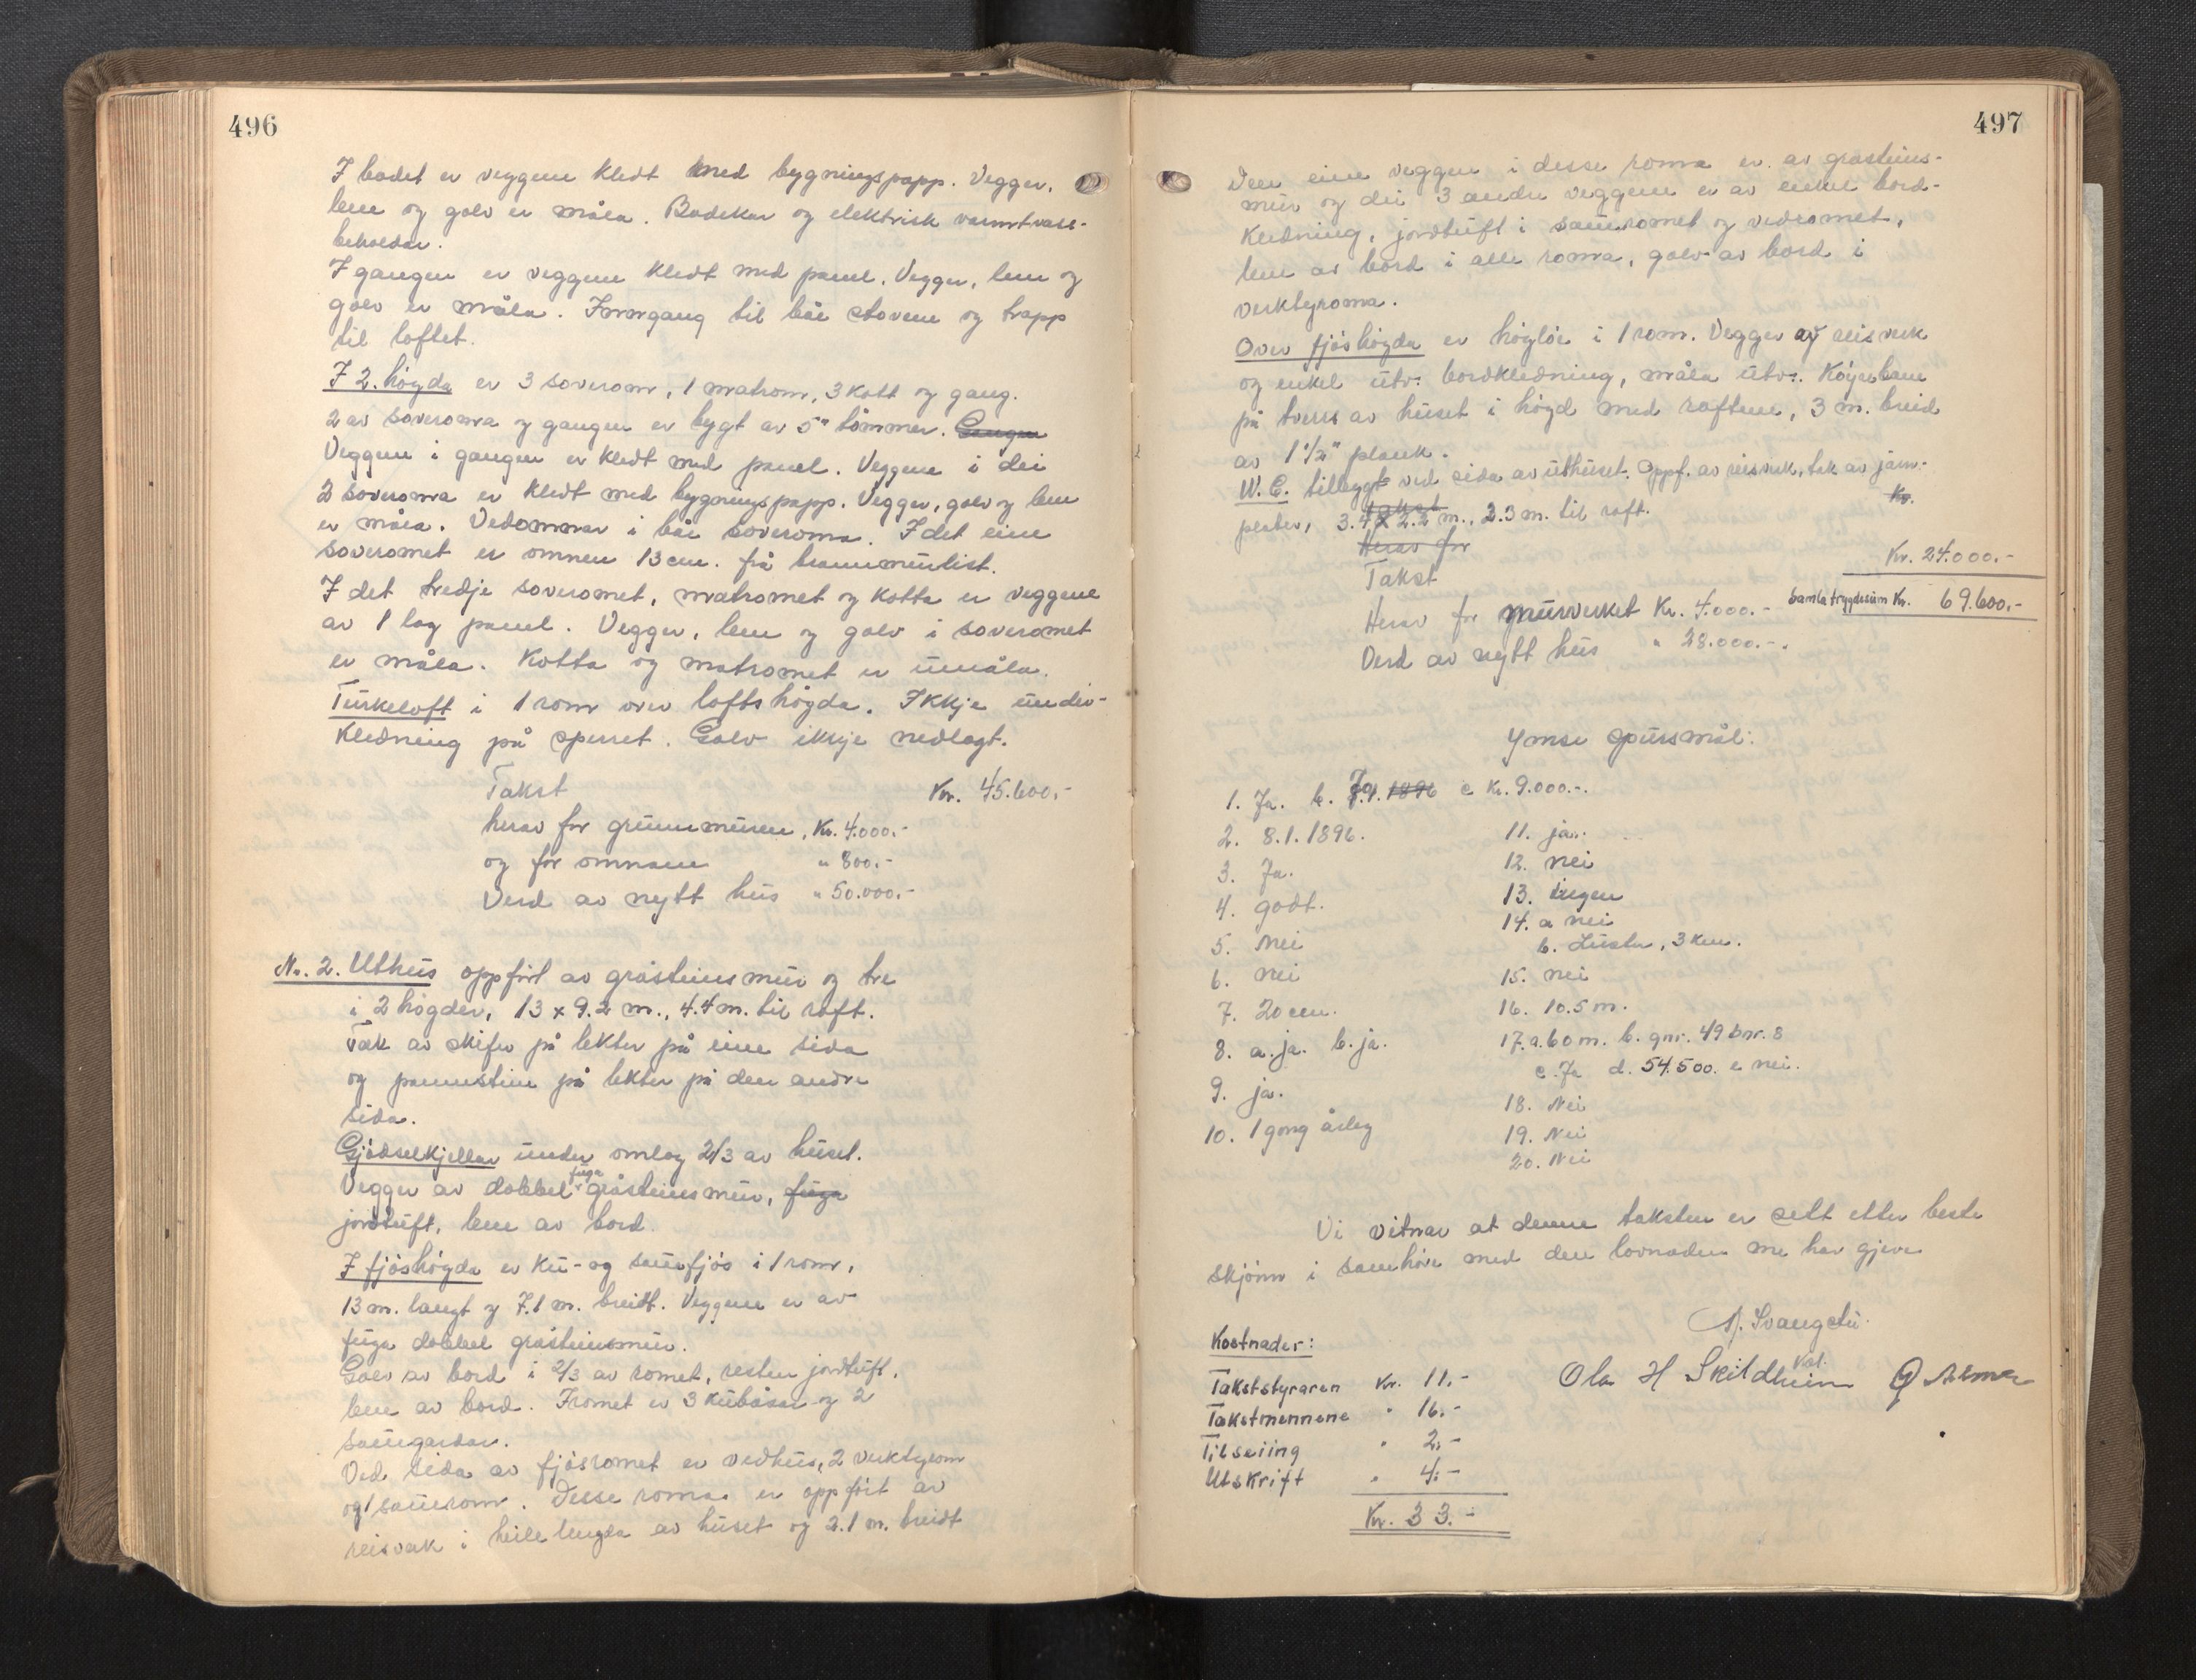 496
I badet er veggene kledt med bygningspapp. Vegger,
lem og golv er måla. Badekar og elektrisk varmtvass-
beholdar.
I gangen er veggene kledt med panel. Vegger, lem og
golv er måla. Inngang til båe stovene og trapp
til loftet.
I 2. høgda er 3 soverom, 1 matrom, 3 kott og gang.
2 av soveroma og gangen er bygt av 5" tømmer. Gangen
Veggene i gangen er kledt med panel. Veggene i dei
2 soveroma er kledt med bygningspapp. Vegger, golv og lem
er måla. Vedomnar i båe soveroma. I det eine
soveromet er omnen 13 cm. frå brannmurlist.
I det tredje soveromet, matromet og kotta er veggene
av 1 lag panel. Vegger, lem og golv i soveromet
er måla. Kotta og matromet er umåla.
Turkeloft i 1 rom over loftshøgda. Ikkje under-
kledning på sperret. Golv ikkje nedlagt.
Takst Kr. 45.600,-
herav for grunnmuren, Kr. 4.000.-
og for omnane " 800.-
Verd av nytt hus " 50.000.-
Nr. 2. Uthus oppført av gråsteinsmur og tre
i 2 høgder, 13 x 9.2 m., 4.4 m. til raft.
Tak av skifer på lekter på eine sida
og pannestein på lekter på den andre
sida.
Gjødselkjellar under omlag 2/3 av huset.
Vegger av dobbel fuga gråsteinsmur, fuga
jordtuft, lem av bord.
I fjøshøgda er ku- og sauefjøs i 1 rom,
13 m. langt og 7.1 m. breidt. Veggene er av
fuga dobbel gråsteinsmur.
Golv av bord i 2/3 av romet, resten jordtuft,
lem av bord. I romet er 3 kubåsar og 2
sauegardar.
Ved sida av fjøsromet er vedhus, 2 verktyrom
og 1 sauerom. Desse roma er oppført av
reisverk i heile lengda av huset og 2.1 m. breidt
497
Den eine veggen i desse roma er av gråsteins-
mur og dei 3 andre veggene er av enkel bord-
kledning, jordtuft i sauromet og vedromet,
lem av bord i alle roma, golv av bord i
verktyroma.
Over fjøshøgda er høyløe i 1 rom. Vegger av reisverk
og enkel utv. bordkledning, måla utv. Køyrebane
på tvers av huset i høgd med raftene, 3 m. breid
av 1 1/2" plank.
W.C. tilbygt ved sida av uthuset. Oppf. av reisverk, tak av jarn-
Kr.
plater, 3.4 x 2.2 m., 2.3 m. til raft.
Takst
Herav for
Takst Kr. 24.000.-
Herav for murverket Kr. 4.000.- Samla trygdesum Kr. 69.600,-
Verd av nytt hus " 28.000.-
Ymse spursmål:
1. Ja. b. Ja 8.1.1896 c Kr. 9.000.-
2. 8.1.1896.
3. Ja.
4. godt.
5. Nei
6. nei
7. 20 cm.
8. a. ja. b. ja.
9. ja.
10. 1 gong årleg
11. ja.
12. nei
13. ingen
14. a nei
b. Luster, 3 km.
15. nei
16. 10.5 m.
17. a. 60 m. b. gnr. 49 bnr. 8
c. Ja d. 54.500. e nei.
18. Nei
19. Nei
20. Nei
Vi vitnar at denne taksten er sett etter beste
skjønn i samhøve med den lovnaden me har gjeve
Kostnader:
Takststyraren Kr. 11.-
Takstmennene " 16.-
Tilseiing " 2.-
Utskrift " 4.-
Kr. 33.-
Ola H Skildheim